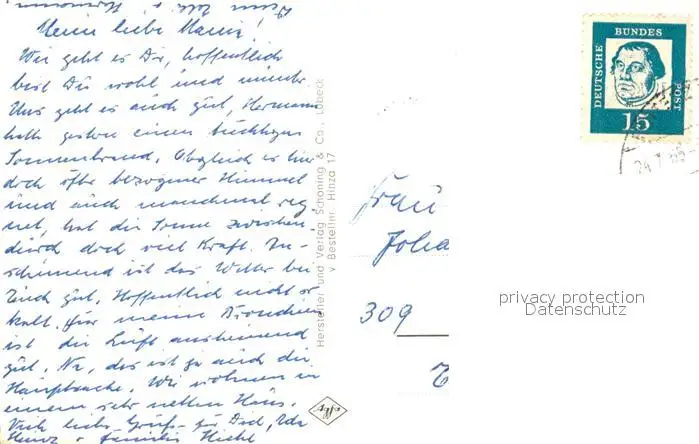 Meine liebe Mami!
Wie geht es Dir, hoffentlich
bist Du wohl und munter.
Uns geht es auch gut, Hermann
hatte gestern einen tüchtigen
Sonnenbrand. Obgleich es hier
doch öfter bezogener Himmel
und auch manchmal reg
net, hat die Sonne zwischen-
durch doch viel Kraft. An-
scheinend ist das Wetter bei
Euch gut. Hoffentlich nicht so
kalt. Für meine Bronchien
ist die Luft anscheinend
gut. Na, das ist ja auch die
Hauptsache. Wir wohnen in
einem sehr netten Haus.
Viele liebe Grüße für Dich,
Familie
Hersteller und Verlag Schöning & Co., Lübeck
v Bestellnr. Hinza 17
DEUTSCHE
BUNDES
POST
15
24.7.65
Frau
Joha
309
privacy protection
Datenschutz